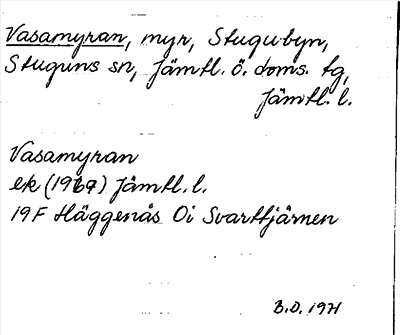 Vasamyran, myr, Stugubyn,
Stuguns sn, Jämtl. ö. doms. tg,
Jämtl. l.
Vasamyran
ek (1967) Jämtl. l.
19F Häggenås Oi Svarttjärnen
B.D. 1971